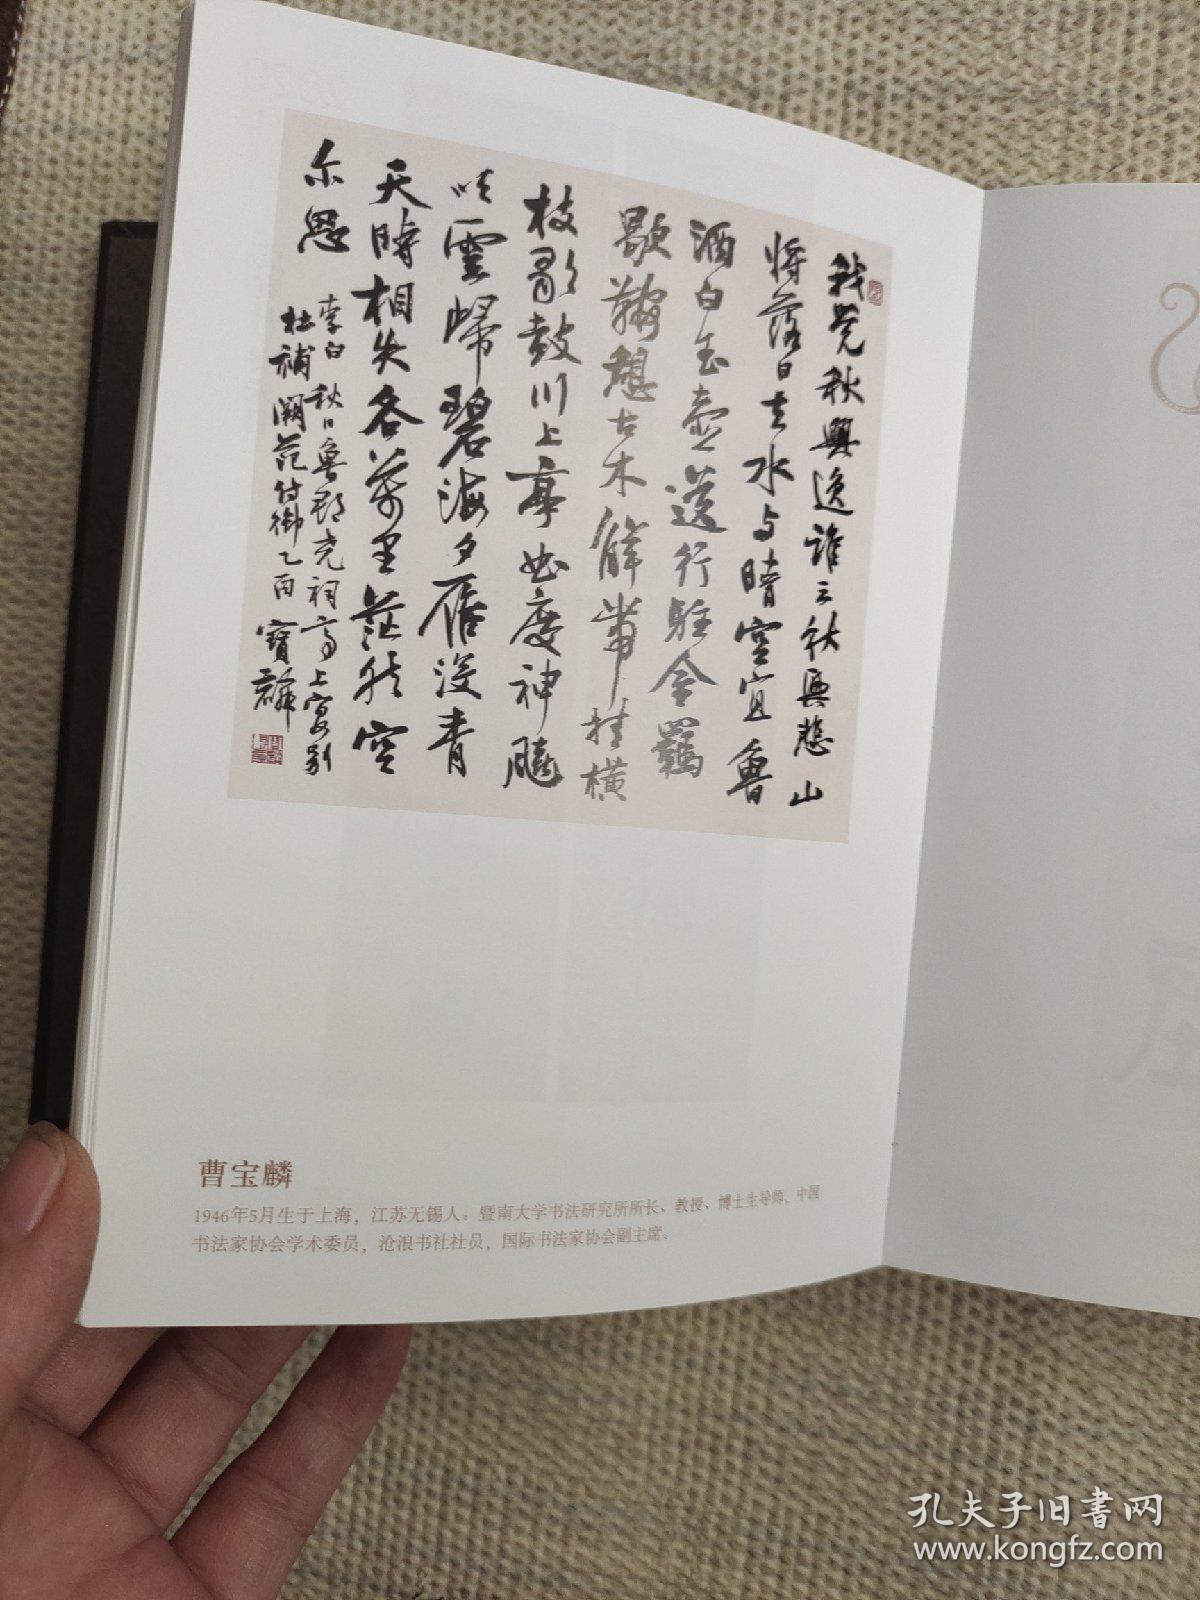 我觉秋興逸誰云秋興悲山
將落日去水与晴空宜魯
酒白玉壺送行駐金羈
歇鞍憩古木解带挂橫
枝歌鼓川上亭曲度神飈
吹雲帰碧海夕雁没青
天時相失各萬里茫然空
尔思
李白秋日魯郡尭祠亭上宴别
杜補闕范侍御乙酉寳麟
曹宝麟
1946年5月生于上海，江苏无锡人。暨南大学书法研究所所长、教授、博士生导师，中国
书法家协会学术委员，沧浪书社社员，国际书法家协会副主席。
孔夫子旧書网
www.kongfz.com